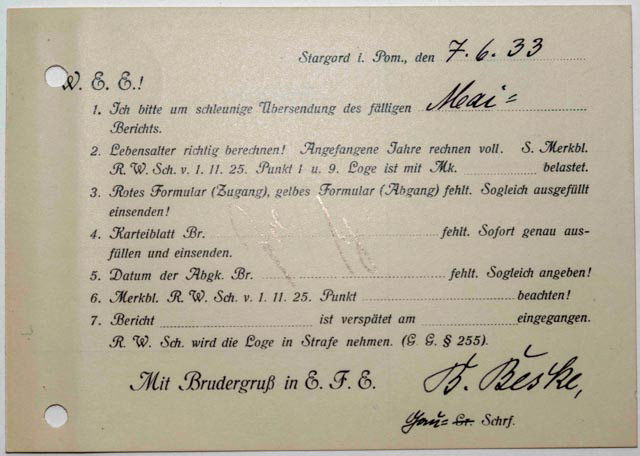 Stargord i. Pom., den 7. 6. 33
W. E. E.!
1. Ich bitte um schleunige Übersendung des fälligen Mai=
Berichts.
2. Lebensalter richtig berechnen! Angefangene Jahre rechnen voll. S. Merkbl.
R. W. Sch. v. 1. 11. 25. Punkt 1 u. 9. Loge ist mit Mk. belastet.
3. Rotes Formular (Zugang), gelbes Formular (Abgang) fehlt. Sogleich ausgefüllt
einsenden!
4. Karteiblatt Br. fehlt. Sofort genau aus-
füllen und einsenden.
5. Datum der Abgk. Br. fehlt. Sogleich angeben!
6. Merkbl. R. W. Sch. v. 1. 11. 25. Punkt beachten!
7. Bericht ist verspätet am eingegangen.
R. W. Sch. wird die Loge in Strafe nehmen. (G. G. § 255).
Mit Brudergruß in E. F. E. B. Beske,
Gau= Gr. Schrf.